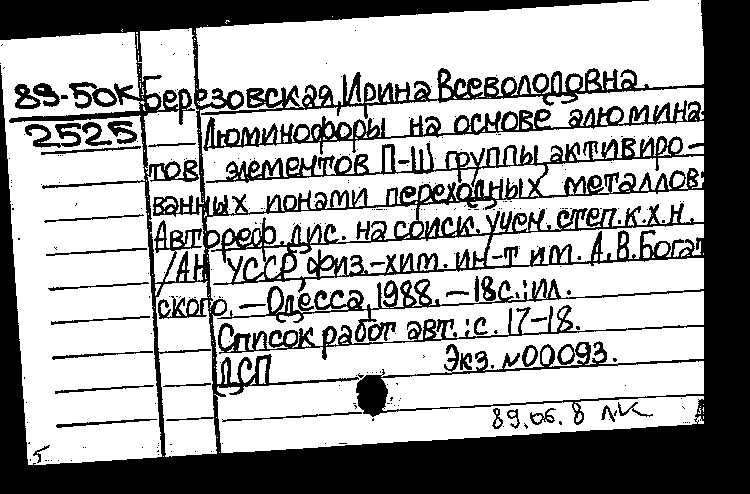 89-50К Березовская, Ирина Всеволодовна.
2525 Люминофоры на основе алюмина-
тов элементов П-Ш группы, активиро-
ванных ионами переходных металлов:
Автореф. дис. на соиск. учен. степ. к.х.н.
/АН УССР, Физ.-хим. ин-т им. А.В.Богат
ского. —Одесса, 1988. —18с.:ил.
Список работ авт.: с. 17-18.
ДСП Экз. №00093.
89.06.8